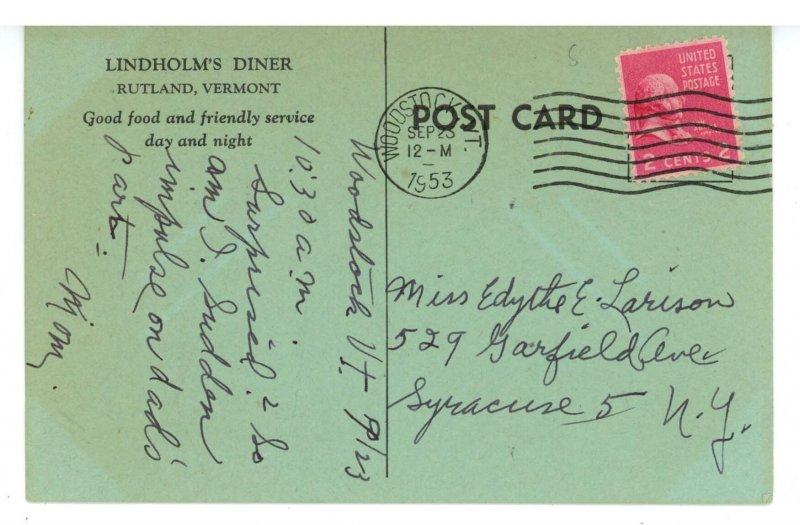 LINDHOLM'S DINER
RUTLAND, VERMONT
Good food and friendly service
day and night
POST CARD
WOODSTOCK VT
SEP 23
12 - M
1953
UNITED
STATES
POSTAGE
2 CENTS 2
Woodstock Vt 9/23
10:30 a.m.
Surprised? So
am I. Sudden
impulse on dad's
part.
Mom.
Miss Edythe E. Larison
529 Garfield Ave
Syracuse 5 N.Y.